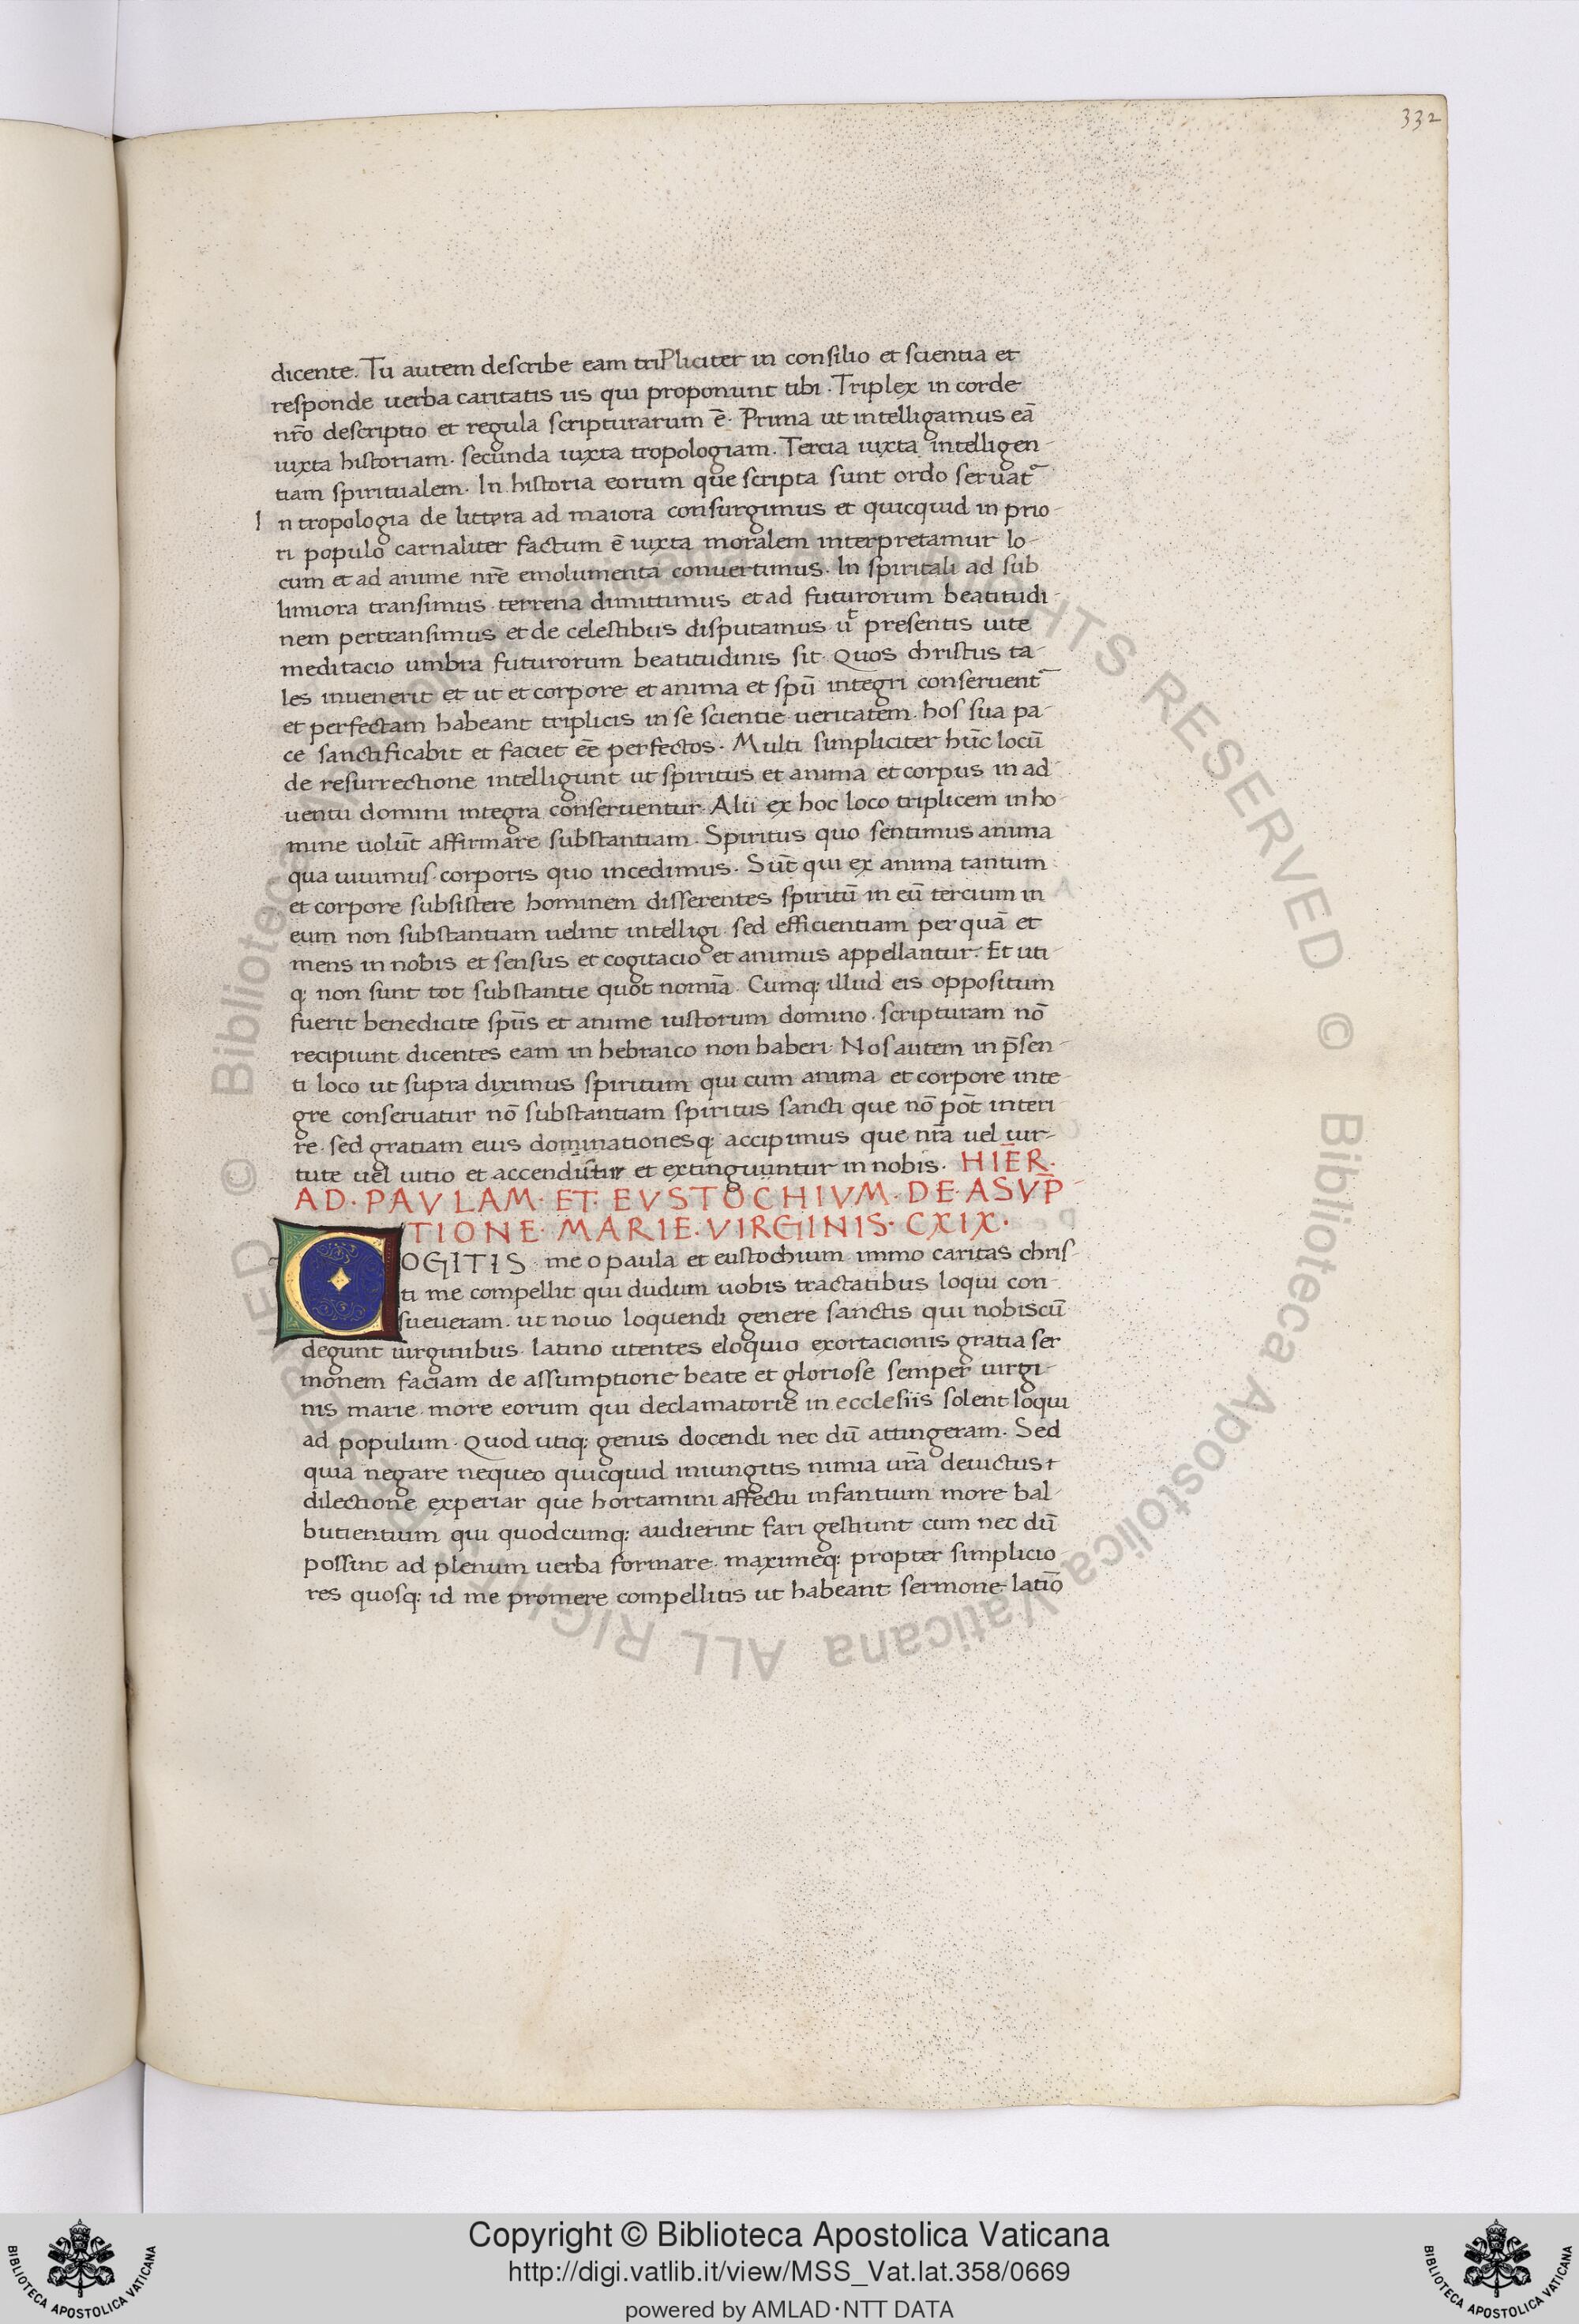 332
dicente. Tu autem describe eam tripliciter in consilio et scientia et
responde uerba caritatis iis qui proponunt tibi. Triplex in corde
nr̄o descriptio et regula scripturarum ē. Prima ut intelligamus eā
iuxta historiam. secunda iuxta tropologiam. Tercia iuxta intelligen-
tiam spiritualem. In historia eorum que scripta sunt ordo seruat᷑
In tropologia de littera ad maiora consurgimus et quicquid in prio-
ri populo carnaliter factum ē iuxta moralem interpretamur lo-
cum et ad anime nr̄e emolumenta conuertimus. In spiritali ad sub
limiora transimus. terrena dimittimus et ad futurorum beatitudi-
nem pertransimus et de celestibus disputamus uͭ presentis uite
meditacio umbra futurorum beatitudinis sit. Quos christus ta-
les inuenerit et ut et corpore et anima et spū integri conseruent᷑
et perfectam habeant triplicis in se scientie ueritatem. hos sua pa-
ce sanctificabit et faciet eē perfectos. Multi simpliciter hūc locū
de resurrectione intelligunt ut spiritus et anima et corpus in ad-
uentu domini integra conseruentur. Alii ex hoc loco triplicem in ho-
mine uolūt affirmare substantiam. Spiritus quo sentimus anima
qua uiuimus. corporis quo incedimus. Sūt qui ex anima tantum
et corpore subsistere hominem disserentes spiritū in eū tercium in
eum non substantiam uelint intelligi. sed efficientiam per quā et
mens in nobis et sensus et cogitacio et animus appellantur. Et uti-
q: non sunt tot substantie quot nomīa. Cumq: illud eis oppositum
fuerit benedicite spūs et anime iustorum domino. scripturam nō
recipiunt dicentes eam in hebraico non haberi. Nos autem in p̄sen-
ti loco ut supra diximus spiritum qui cum anima et corpore inte-
gre conseruatur nō substantiam spiritus sancti que nō pōt interi-
re. sed gratiam eius dominationesq: accipimus que nr̄a uel uir-
tute uel uitio et accendūtur et extinguuntur in nobis. HIER̄.
AD. PAVLAM. ET. EVSTOCHIVM. DE. ASVP̄-
TIONE. MARIE. VIRGINIS. CXIX.
COGITIS me o paula et eustochium immo caritas chris-
ti me compellit qui dudum uobis tractatibus loqui con-
sueueram. ut nouo loquendi genere sanctis qui nobiscū
degunt uirginibus. latino utentes eloquio exortacionis gratia ser
monem faciam de assumptione beate et gloriose semper uirgi-
nis marie. more eorum qui declamatorie in ecclesiis solent loqui
ad populum. Quod utiq: genus docendi nec dū attingeram. Sed
quia negare nequeo quicquid iniungitis nimia ur̄a deuictus
dilectione experiar que hortamini affectu infantium more bal-
butientium qui quodcumq: audierint fari gestiunt cum nec dū
possint ad plenum uerba formare. maximeq: propter simplicio-
res quosq: id me promere compellitis ut habeant sermone latīo
Copyright © Biblioteca Apostolica Vaticana
http://digi.vatlib.it/view/MSS_Vat.lat.358/0669
powered by AMLAD·NTT DATA
BIBLIOTECA APOSTOLICA VATICANA
BIBLIOTECA APOSTOLICA VATICANA
© Biblioteca Apostolica Vaticana ALL RIGHTS RESERVED
© Biblioteca Apostolica Vaticana ALL RIGHTS RESERVED